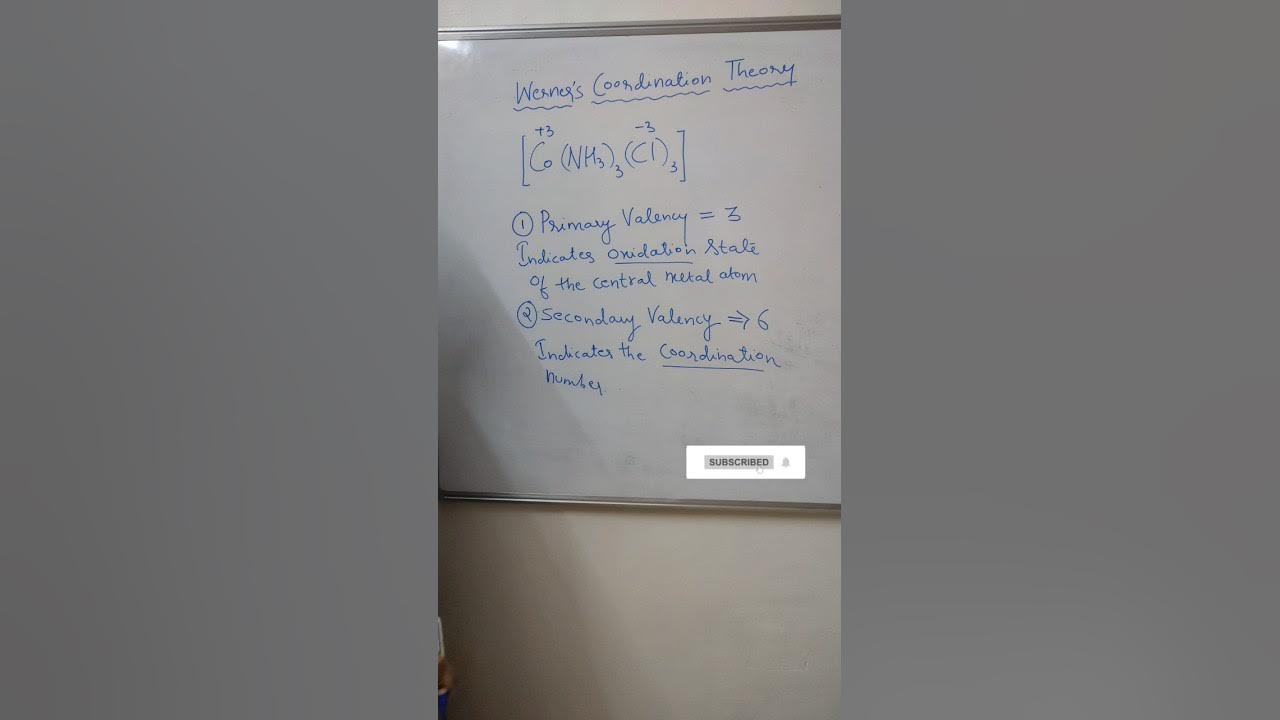 Werner's Coordination Theory
+3 -3
[Co(NH₃)₃(Cl)₃]
① Primary Valency = 3
Indicates Oxidation State
Of the central metal atom
② Secondary Valency ⇒ 6
Indicates the Coordination
number
SUBSCRIBED